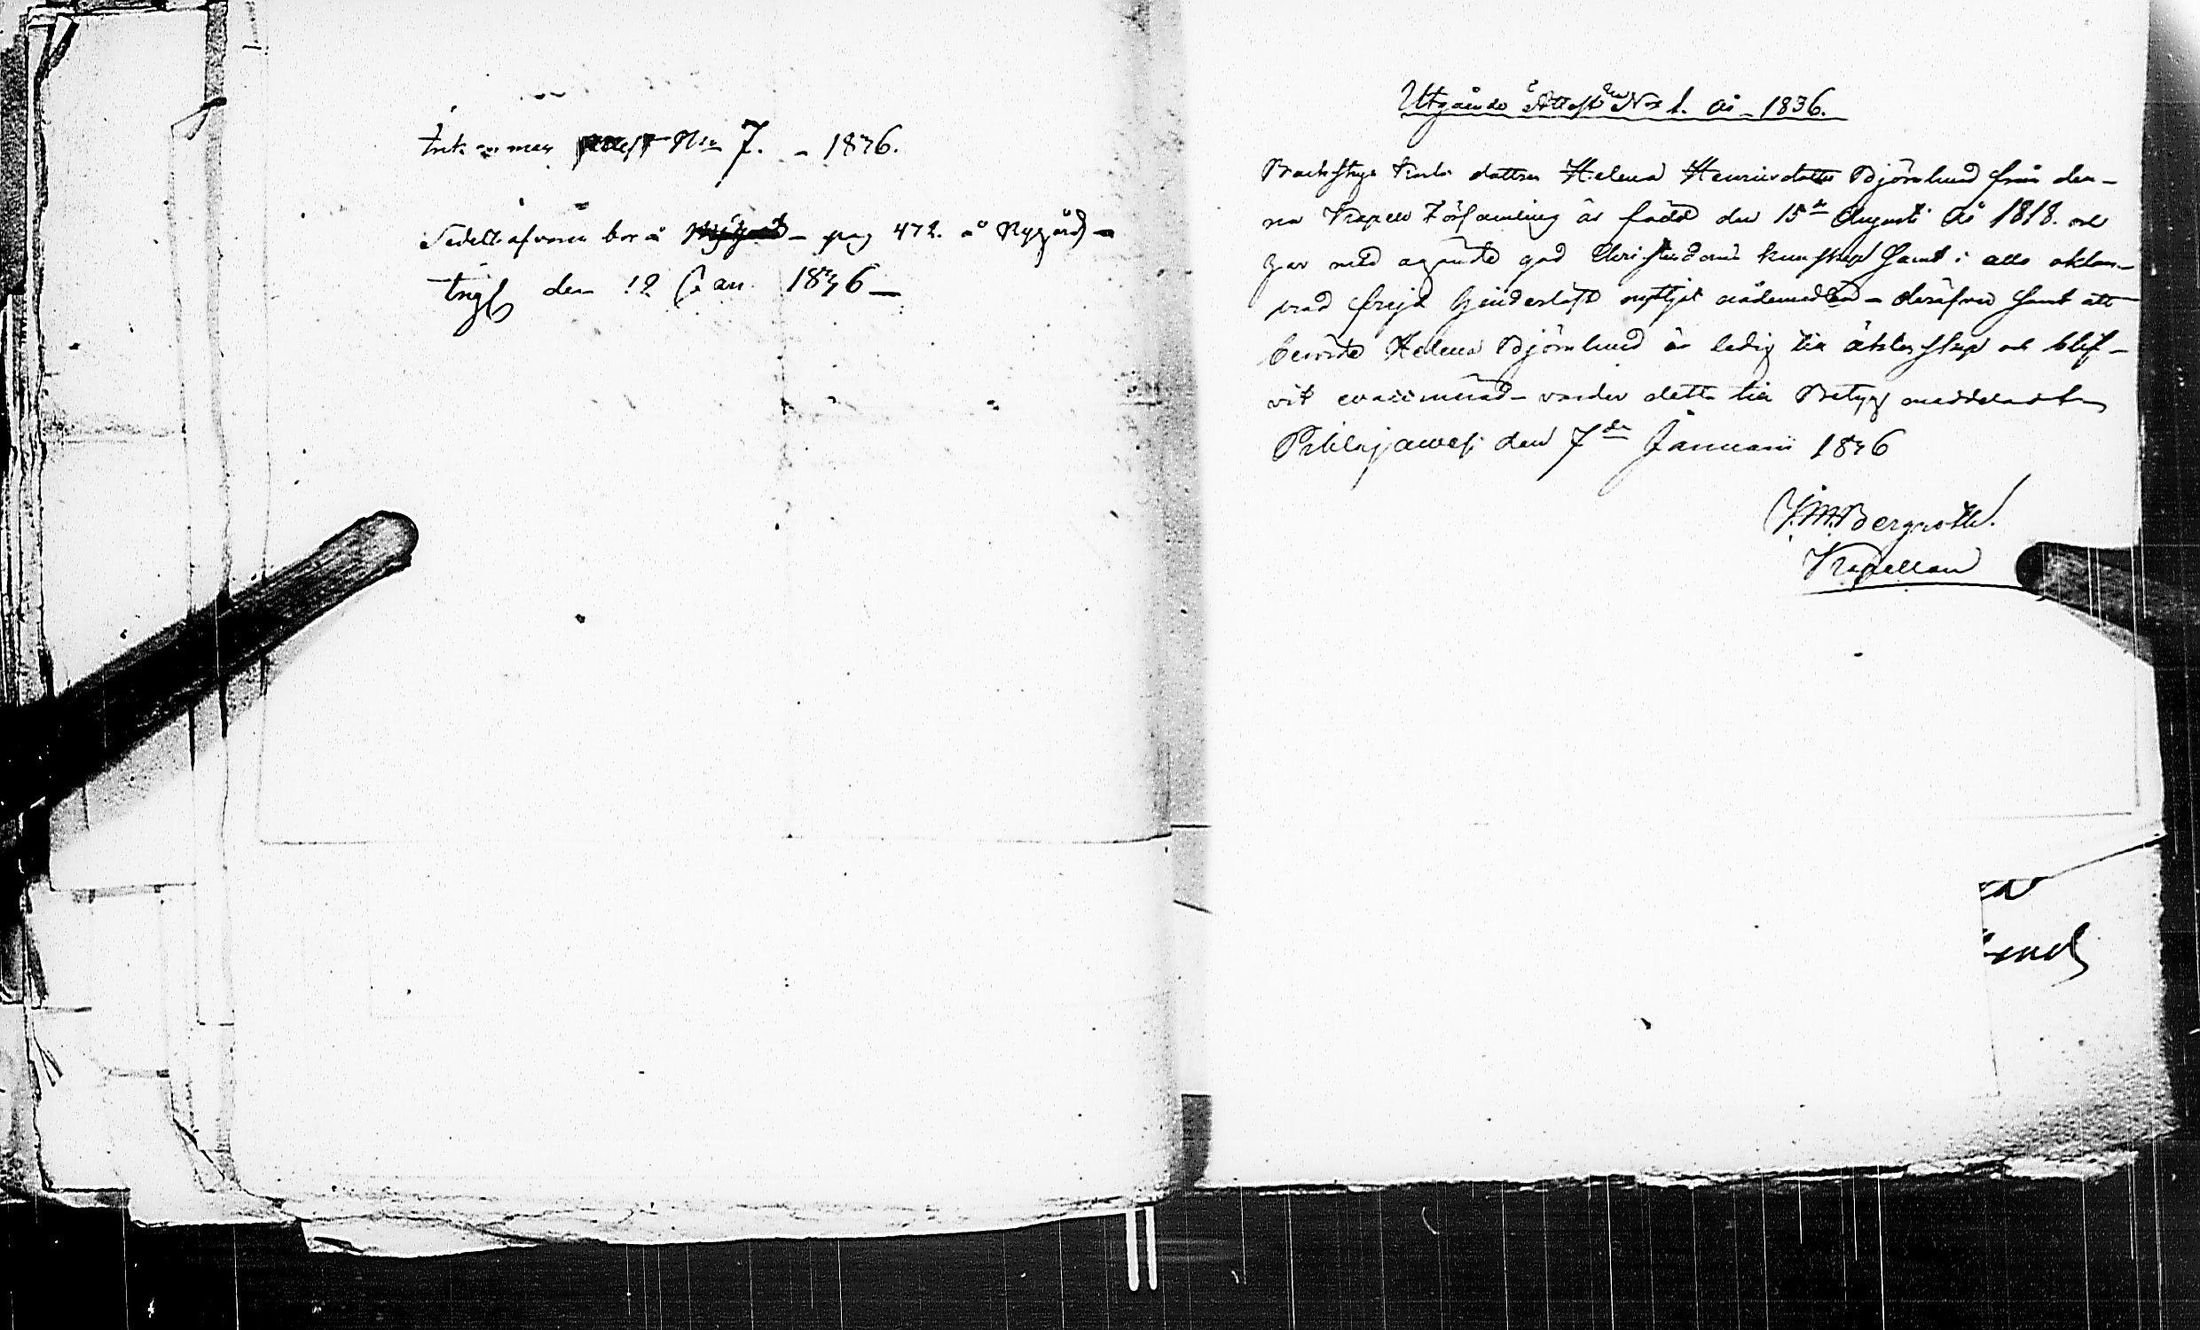 Inkommen attest N:o 7. - 1836.
Sedelhafvaren bor å - pag 472. å Nygård -
den 12 Jan. 1836 -
Utgående Attest N:o 1. år - 1836.
Backstugu Karls dottren Helena Henricsdotter Björnlund från den-
na Kapell Församling är född den 15de Augusti år 1818. och
har med ägande god Christendoms kunskap samt i allo oklan-
drad frejd hinderslöst nyttjat nådemedlen - Derafven samt att
bemälde Helena Björnlund är ledig till äktenskap och blif-
vit vaccinerad - varder detta till Betyg meddeladt
Pihlajavesi den 7de Januarii 1836
J. M. Bergroth.
Kapellan